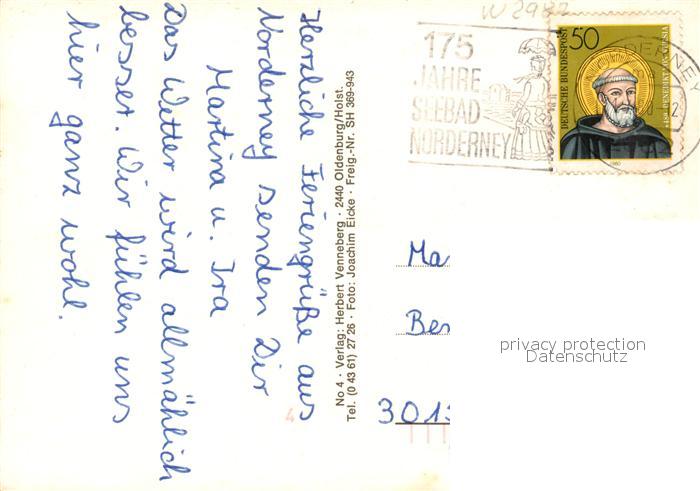 Herzliche Feriengrüße aus
Norderney senden Dir
Martina u. Ira
Das Wetter wird allmählich
besser. Wir fühlen uns
hier ganz wohl.
No 4 · Verlag: Herbert Venneberg · 2440 Oldenburg/Holst.
Tel. (0 43 61) 27 26 · Foto: Joachim Eicke · Freig.-Nr. SH 369-943
W 2982
175
JAHRE
SEEBAD
NORDERNEY
50
DEUTSCHE BUNDESPOST
1980
Ma
Ber
3013
privacy protection
Datenschutz